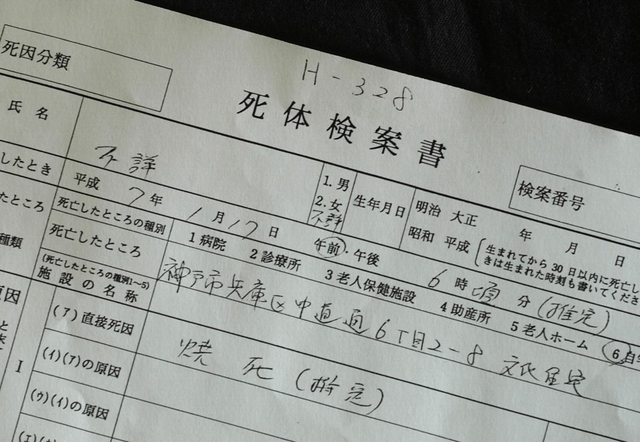 死因分類
H-328
死体検案書
検案番号
氏名
不詳
1.男
2.女
不詳
生年月日
明治 大正
昭和 平成
年 月 日
生まれてから30日以内に死亡し
きは生まれた時刻も書いてくださ
したとき
平成 7年 1月 17日 午前・午後 6時頃 分(推定)
したところ
種類
死亡したところの種別
1病院 2診療所 3老人保健施設 4助産所 5老人ホーム 6自
死亡したところ
神戸市兵庫区中道通6丁目2-8 文化住宅
(死亡したところの種別1~5)
施設の名称
原因
I
(ア)直接死因
焼死(推定)
(イ)(ア)の原因
(ウ)(イ)の原因